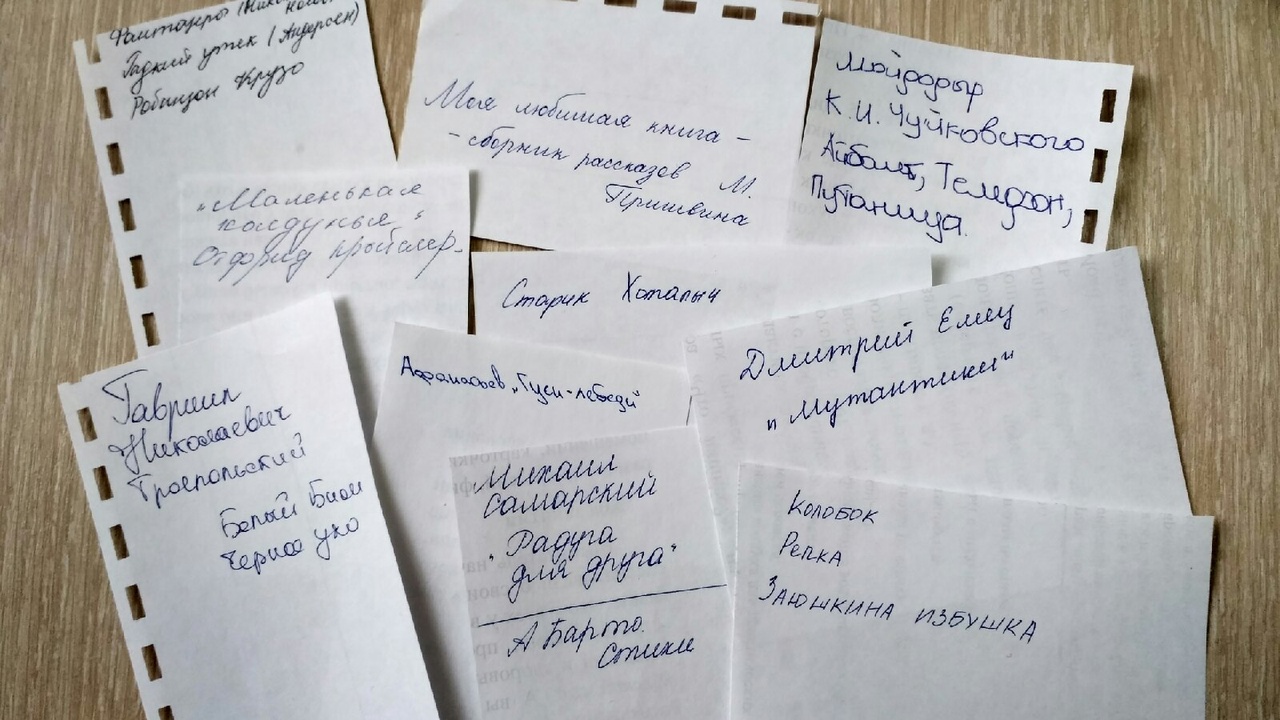 Фантазёры (Нико
Носов
Гадкий утёк (Андерсен)
Робинзон Крузо
Моя любимая книга –
– сборник рассказов М.
Пришвина
Мойдодыр
К.И. Чуйковского
Айболит, Телефон,
Путаница.
"Маленькая
колдунья"
Отфрид Пройслер
Старик Хоталыч
Дмитрий Емец
"Мутантики"
Афанасьев "Гуси-лебеди"
Гавриил
Николаевич
Троепольский
Белый Бим
Черное ухо
Михаил
Самарский
"Радуга
для друга"
А Барто.
Стихи
Колобок
Репка
Заюшкина избушка